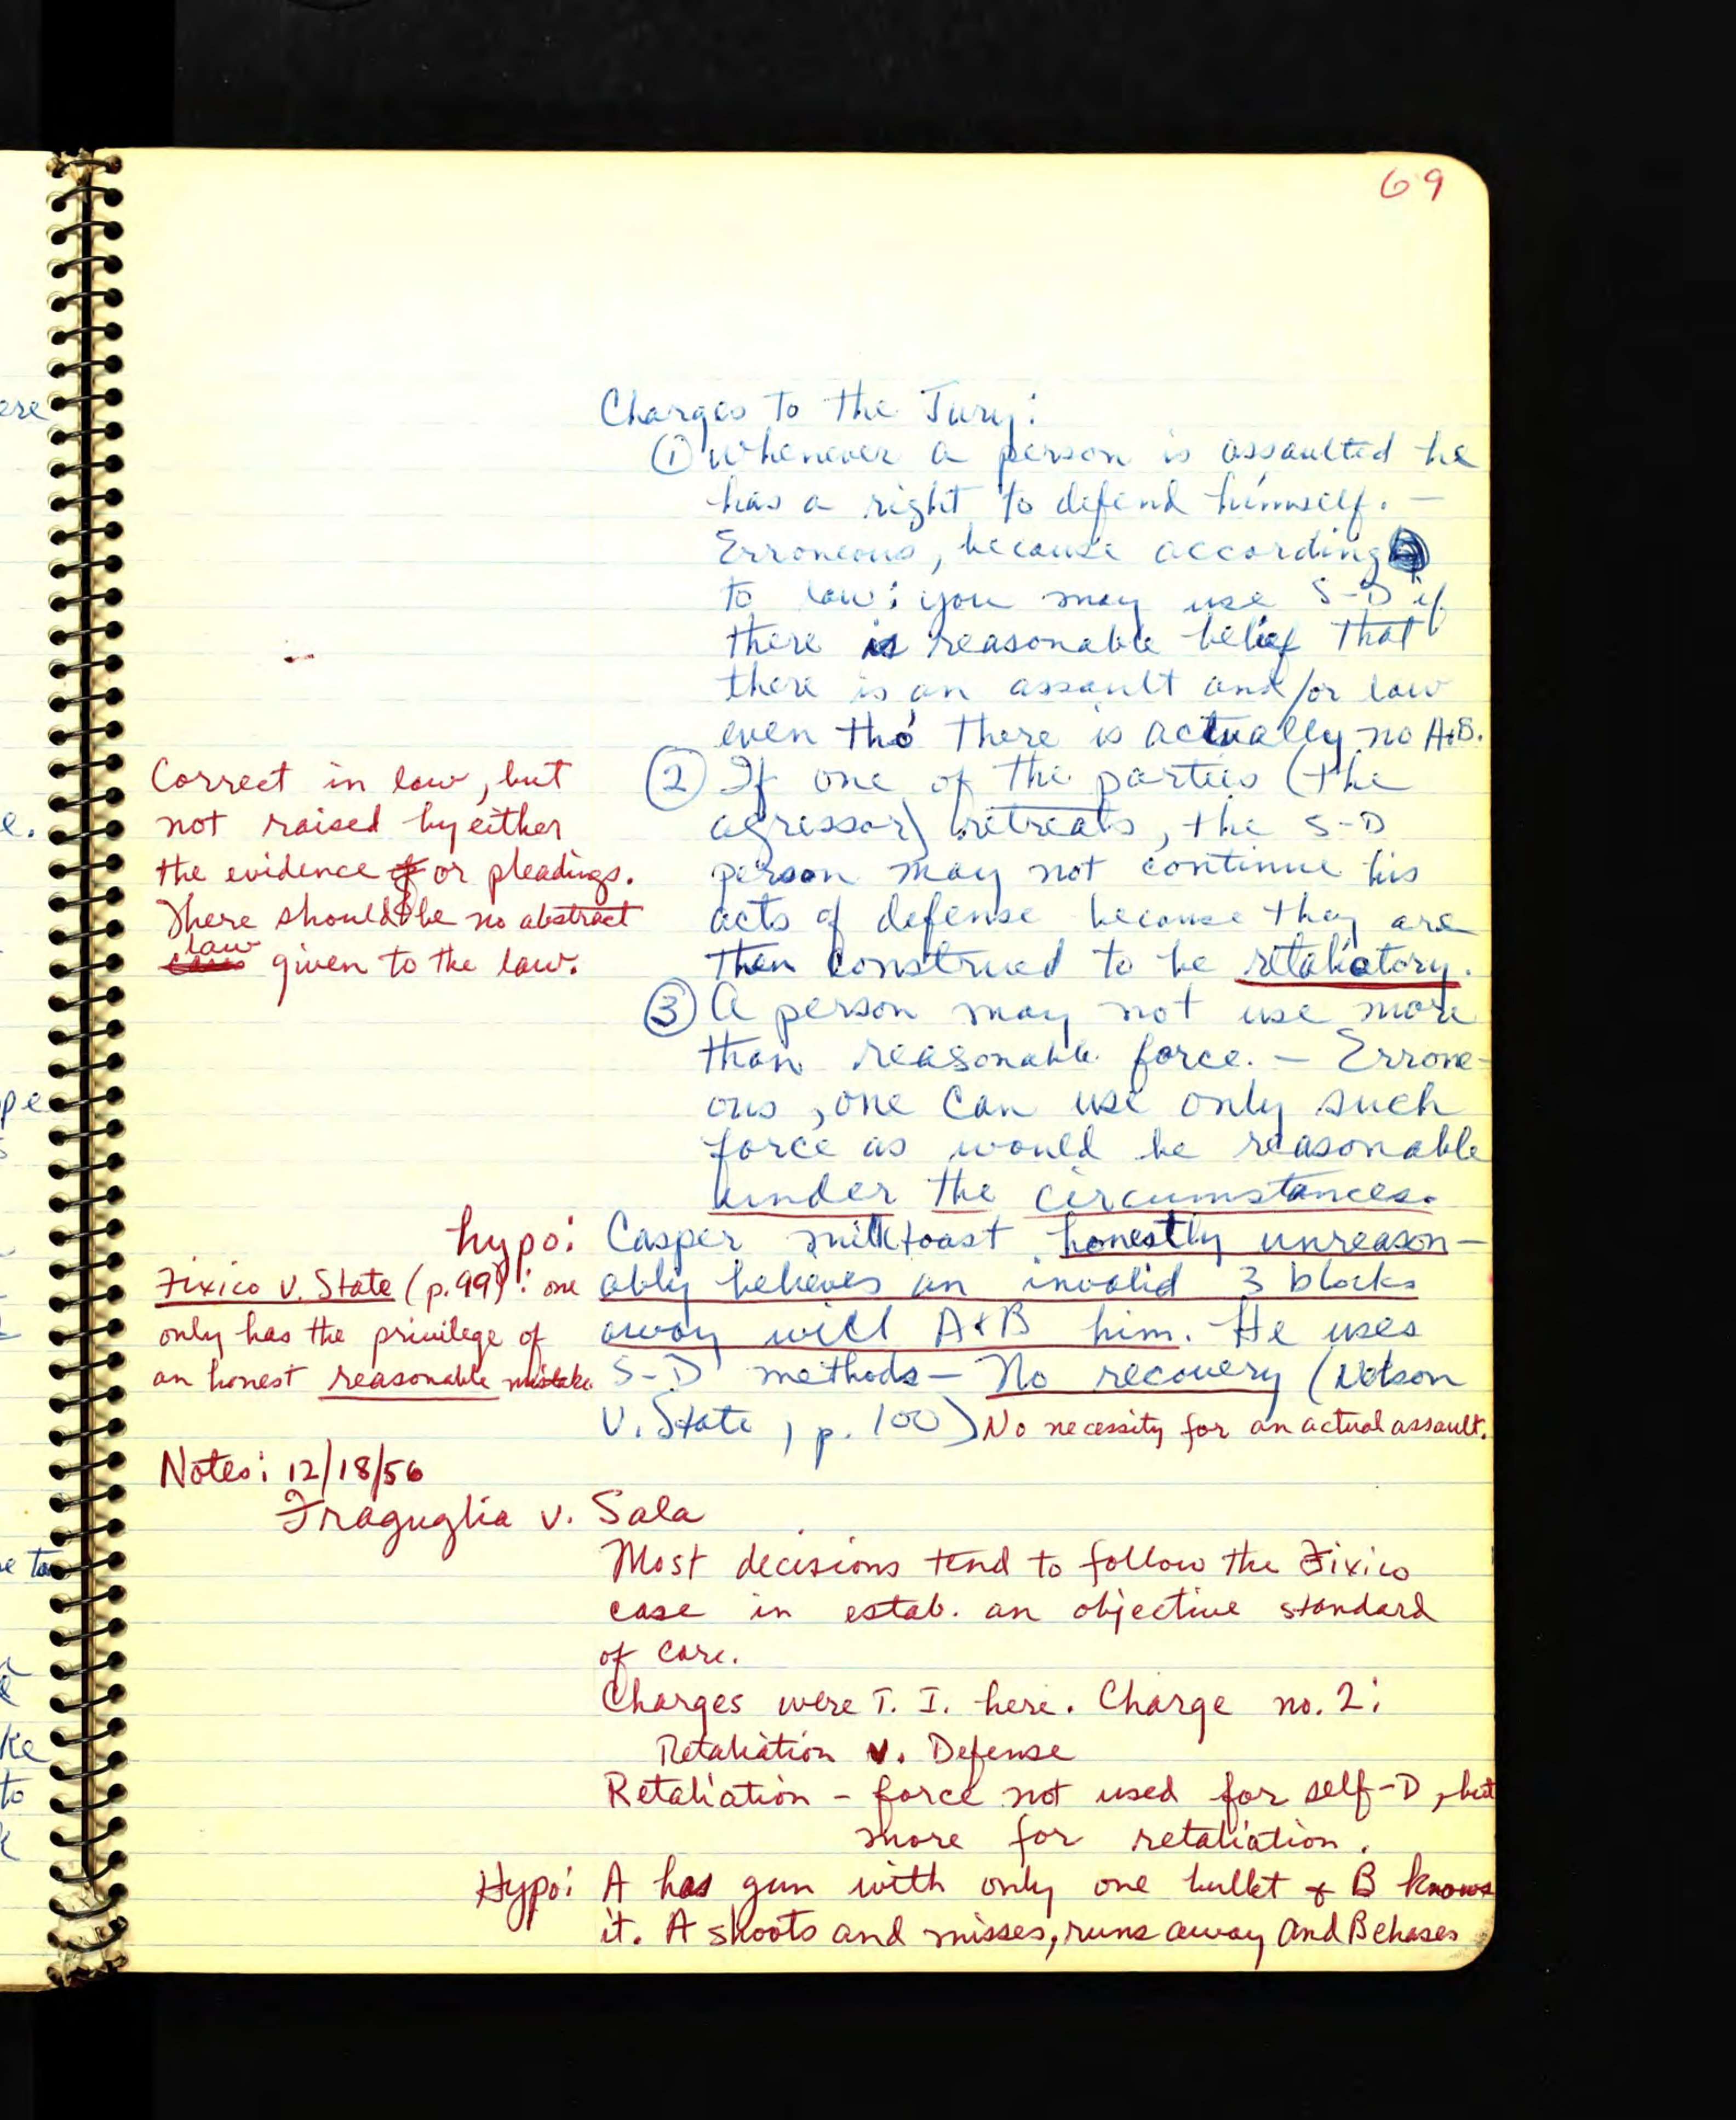 69
Charges to the Jury:
① Whenever a person is assaulted he
has a right to defend himself. —
Erroneous, because according
to law: you may use S-D if
there is reasonable belief that
there is an assault and/or law
even tho' there is actually no A+B.
② If one of the parties (the
agressor) retreats, the S-D
person may not continue his
acts of defense because they are
then construed to be retaliatory.
Correct in law, but
not raised by either
the evidence or pleadings.
There should be no abstract
law given to the law.
③ A person may not use more
than reasonable force. — Errone-
ous, one can use only such
force as would be reasonable
under the circumstances.
hypo: Casper milktoast honestly unreason-
ably believes an invalid 3 blocks
away will A+B him. He uses
S-D methods — No recovery (
V. State, p. 100) No necessity for an actual assault.
Fixico v. State (p. 99): one
only has the privilege of
an honest reasonable mistake
Notes: 12/18/56
Fraguglia v. Sala
Most decisions tend to follow the Fixico
case in estab. an objective standard
of care.
Charges were T. I. here. Charge no. 2:
Retaliation v. Defense
Retaliation - force not used for self-D, but
more for retaliation.
Hypo: A has gun with only one bullet + B knows
it. A shoots and misses, runs away and B chases
ere
e.
pe
s
e to
ke
to
k